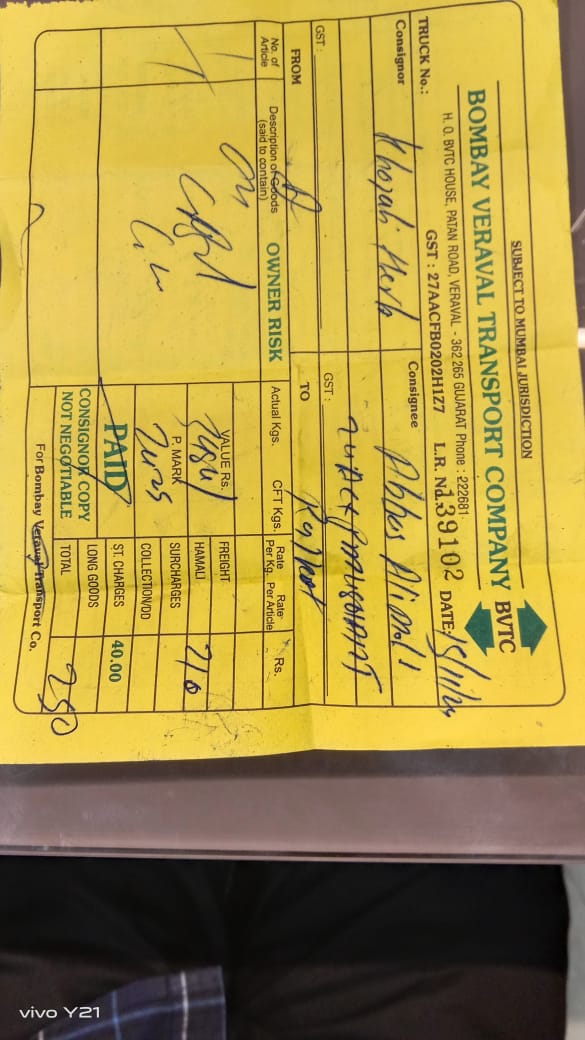 SUBJECT TO MUMBAI JURISDICTION
BOMBAY VERAVAL TRANSPORT COMPANY BVTC
H. O. BVTC HOUSE, PATAN ROAD, VERAVAL - 362 265 GUJARAT Phone : 222681
GST : 27AACFB0202H1Z7 L.R. No. 139102 DATE: 15/11/24
TRUCK No.:
Consignor Consignee
Khojali Herb Abbas Ali
GST : GST :
FROM TO
Rajkot
No. of Article Description of Goods (said to contain) OWNER RISK Actual Kgs. CFT Kgs. Rate Per Kg. Rate Per Article Rs.
VALUE Rs. FREIGHT
HAMALI 210
P. MARK SURCHARGES
COLLECTION/DD
PAID ST. CHARGES 40.00
CONSIGNOR COPY LONG GOODS
NOT NEGOTIABLE TOTAL 250
For Bombay Veraval Transport Co.
vivo Y21